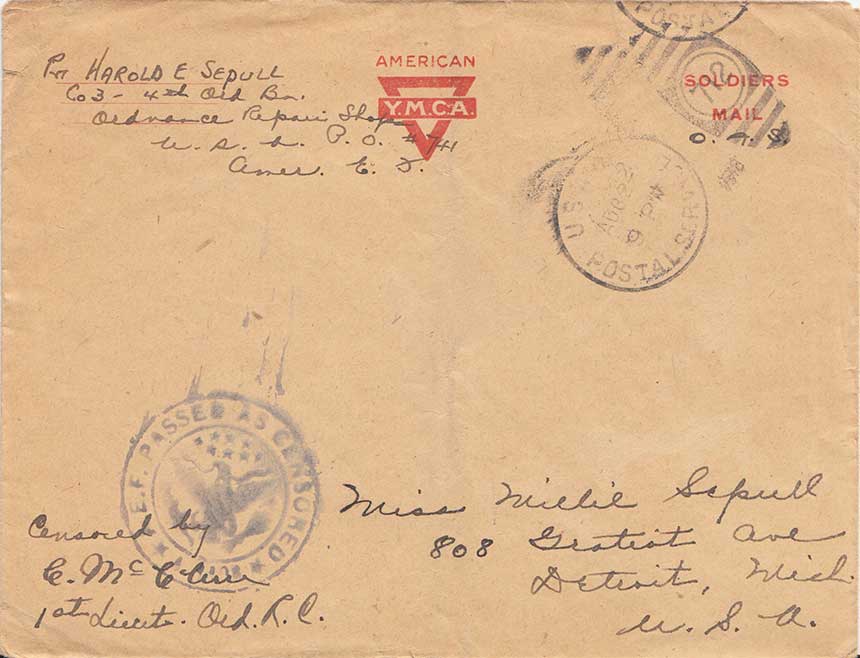 Pvt HAROLD E SEPULL
Co 3 - 4th Ord Bn.
Ordnance Repair Shop
U. S. A. P. O. # 741
Amer. E. F.
AMERICAN
Y.M.C.A.
POSTAL
SOLDIERS
MAIL
O. A. S.
U S POSTAL SERVICE
22
PM
E.F. PASSED AS CENSORED
Censored by
1st Lieut. Ord. R. C.
Miss Millie Sepull
808 Gratiot Ave
Detroit, Mich.
U. S. A.